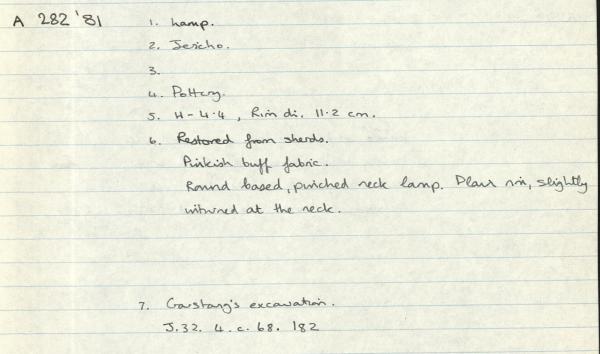 A 282 '81
1. Lamp.
2. Jericho.
3.
4. Pottery.
5. H - 4.4, Rim di. 11.2 cm.
6. Restored from sherds.
Pinkish buff fabric.
Round based, pinched neck lamp. Plain rim, slightly
inturned at the neck.
7. Garstang's excavation.
J.32. 4. c. 68. 182